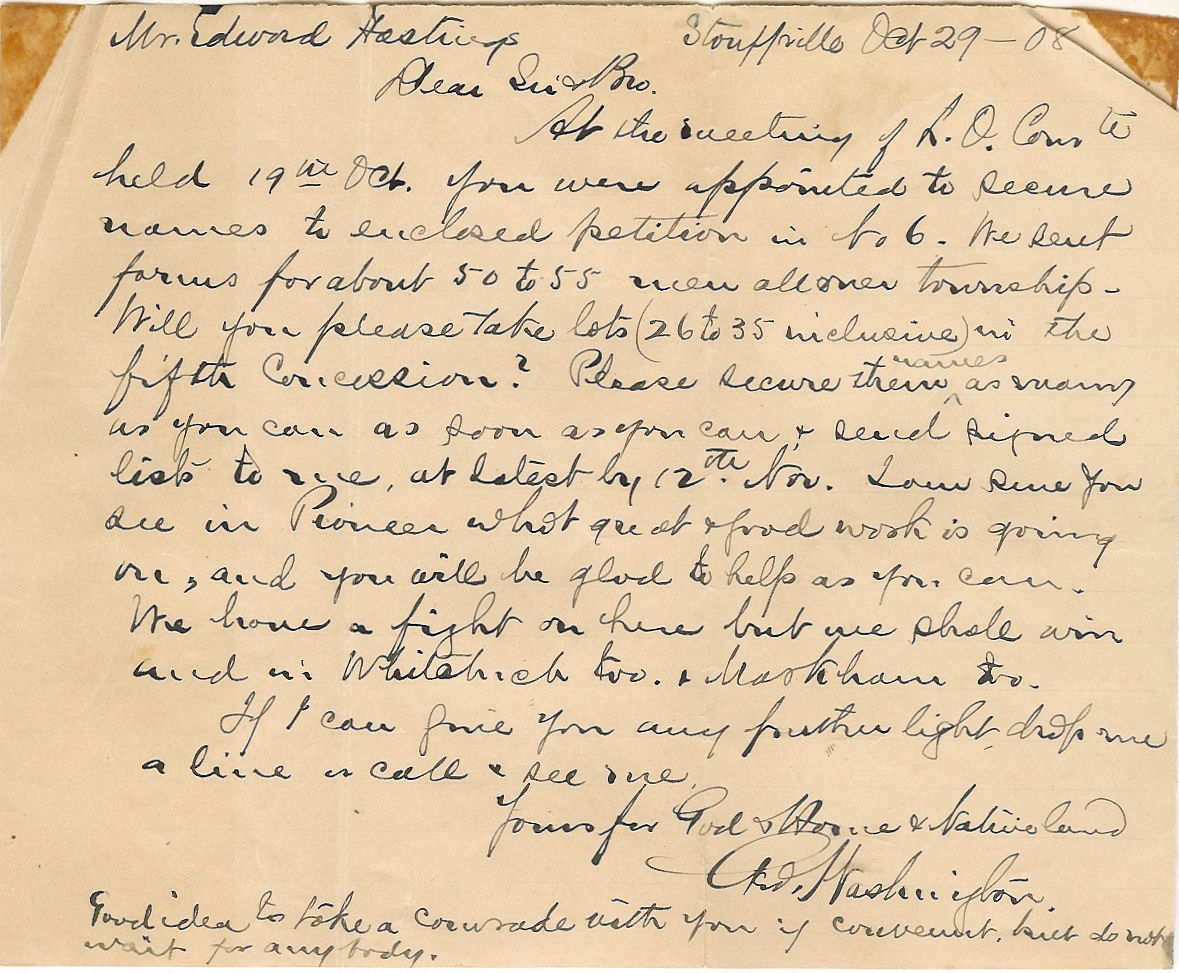 Mr. Edward Hastings Stouffville Oct 29 – 08
Dear Sir & Bro.
At the meeting of L. O. Com te
held 19th Oct. you were appointed to secure
names to enclosed petition in No 6. We sent
forms for about 50 to 55 men all over township –
Will you please take lots (26 to 35 inclusive) in the
names
fifth Concession? Please secure them ^ as many
as you can as soon as you can, & send signed
lists to me, at latest by 12th. Nov. I am sure you
see in Pioneer what great & good work is going
on, and you will be glad to help as you can.
We have a fight on here but we shall win
and in Whitchurch too. & Markham too.
If I can give you any further light drop me
a line or call & see me.
Yours for God & Home & Native land
Washington.
Good idea to take a comrade with you if convenient. but do not
wait for anybody.